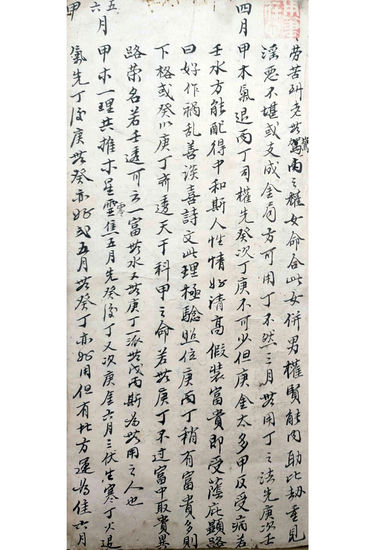 劳苦到老無駕馭之權女命合此女併男權賢能内助比劫重見
淫悪不堪或支成金局方可用丁不然三月無用丁之法先庚次壬
四月 甲木氣退丙丁司權先癸次丁庚不可少但庚金太多甲反受病若
壬水方能配得中和斯人性情好清高假装富貴即受蔭庇顯路
曰好作禍乱善談喜詩文此理極驗 位庚丙丁稍有富貴多則
下格或癸 庚丁齊透天干科甲之命若無庚丁不过富中取貴異
路榮名若壬透可云一富無水又無庚丁一派 戊丙斯為無用之人也
五六月 甲木一理共推木星靈零焦五月先癸後丁又次庚金六月三伏生寒丁火退
氣先丁後庚無癸亦好或五月無癸丁亦好用但有北方運為佳六月
甲